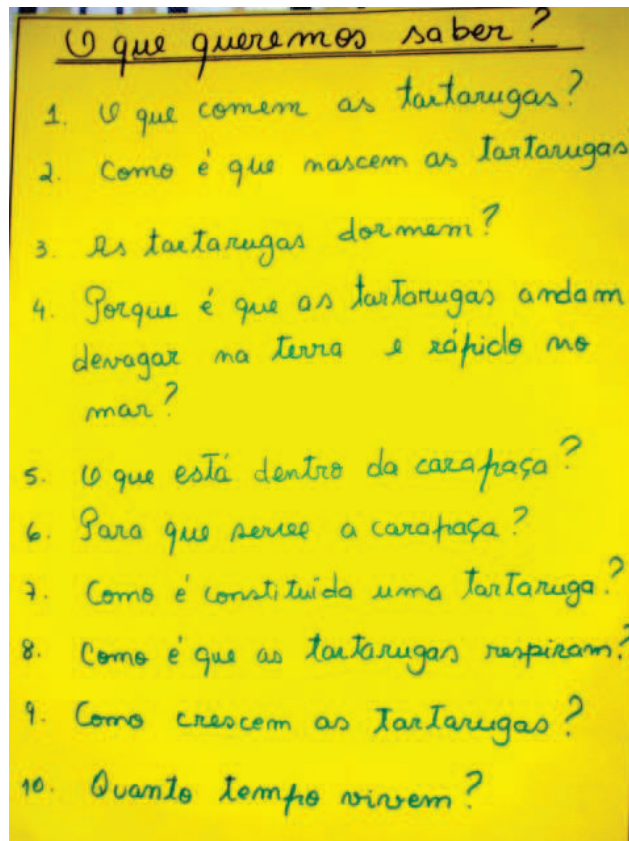 O que queremos saber?
1. O que comem as tartarugas?
2. Como é que nascem as tartarugas
3. As tartarugas dormem?
4. Porque é que as tartarugas andam
devagar na terra e rápido no
mar?
5. O que está dentro da carapaça?
6. Para que serve a carapaça?
7. Como é constituída uma tartaruga?
8. Como é que as tartarugas respiram?
9. Como crescem as tartarugas?
10. Quanto tempo vivem?